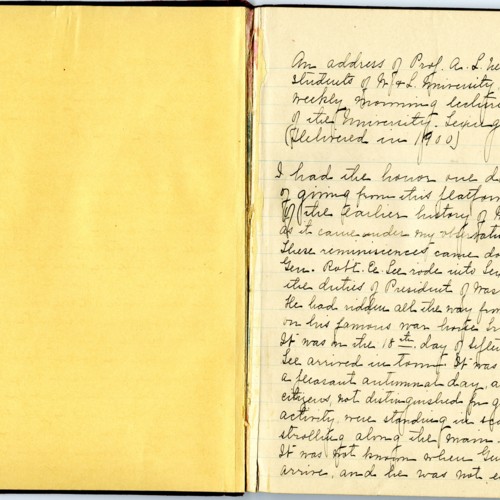 An address of Prof. A. L.
students of W. & L. University
weekly morning lecture
of the University.
(Delivered in 1900)
I had the honor one
of giving from this platform
of the earlier history of
as it came under my
These reminiscences came
Gen. Robt. E. Lee rode into
the duties of President of Was
He had ridden all the way from
on his famous war horse
It was on the 18th day of
Lee arrived in town. It was
a pleasant autumnal day, a
citizens, not distinguished for
activity were standing in
strolling along the main
It was not known when
arrive, and he was not